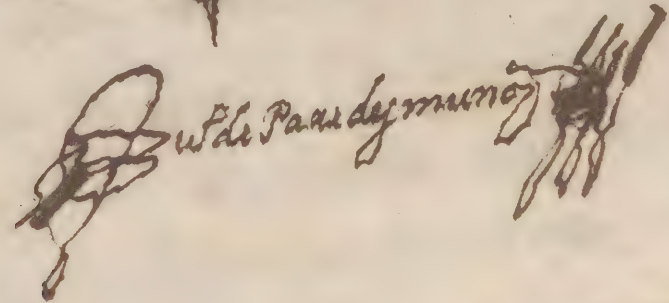 de Paredes munoz